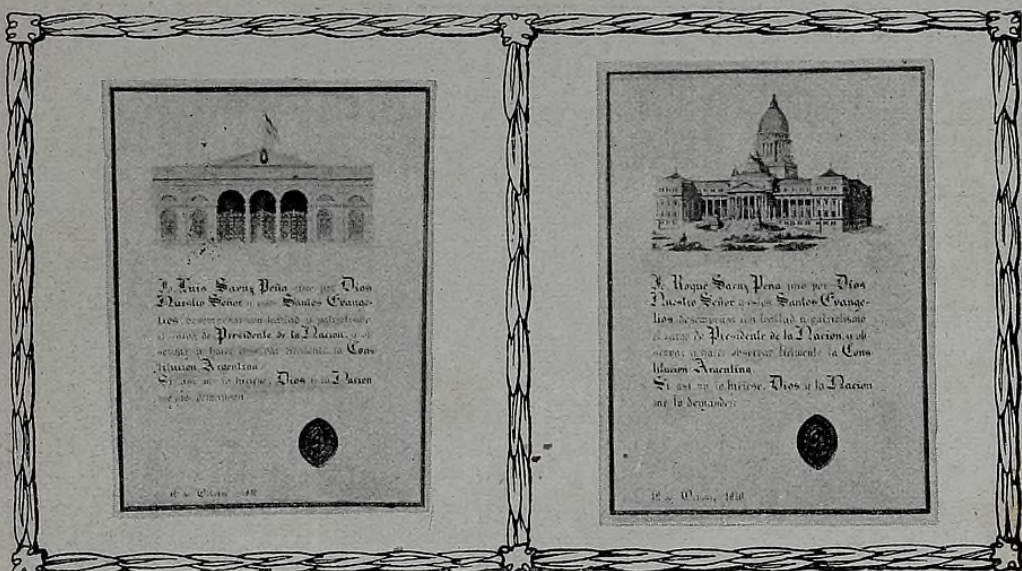 Yo, Luis Saenz Peña juro por Dios
Nuestro Señor y estos Santos Evange-
lios, desempeñar con lealtad y patriotismo
el cargo de Presidente de la Nacion, y ob
servar y hacer observar fielmente la Cons
titucion Argentina
Si asi no lo hiciese, Dios y la Nacion
me lo demanden
12 de Octubre
Yo, Roque Saenz Peña juro por Dios
Nuestro Señor y estos Santos Evange-
lios desempeñar con lealtad y patriotismo
el cargo de Presidente de la Nacion, y ob
servar y hacer observar fielmente la Cons
titucion Argentina
Si asi no lo hiciese, Dios y la Nacion
me lo demanden
12 de Octubre 1910